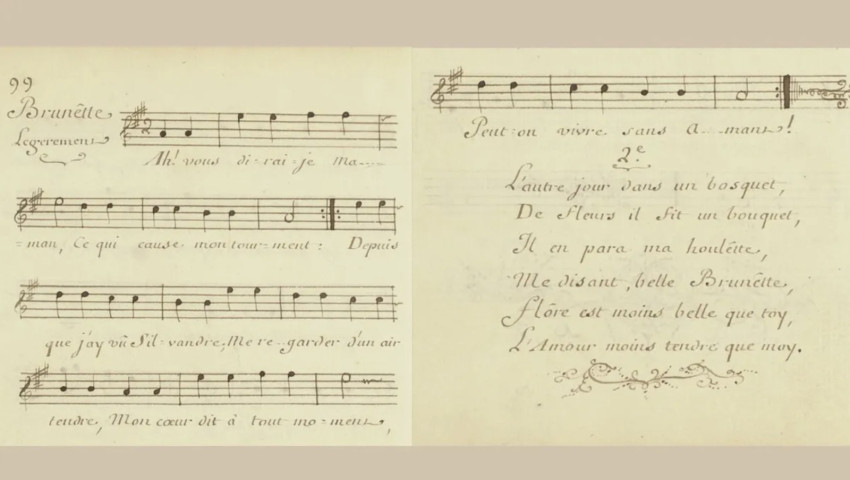 99
Brunêtte
Legerement
2
Ah! vous di-rai-je ma-
-man, Ce qui cause mon tour-ment: Depuis
que j'ay vû Sil-vandre, Me re-garder d'un air
tendre, Mon cœur dit à tout mo-ment,
Peut-on vivre sans A-mant!
2.e
L'autre jour dans un bosquet,
De fleurs il fit un bouquet,
Il en para ma houlêtte,
Me disant, belle Brunêtte,
Flôre est moins belle que toy,
L'Amour moins tendre que moy.